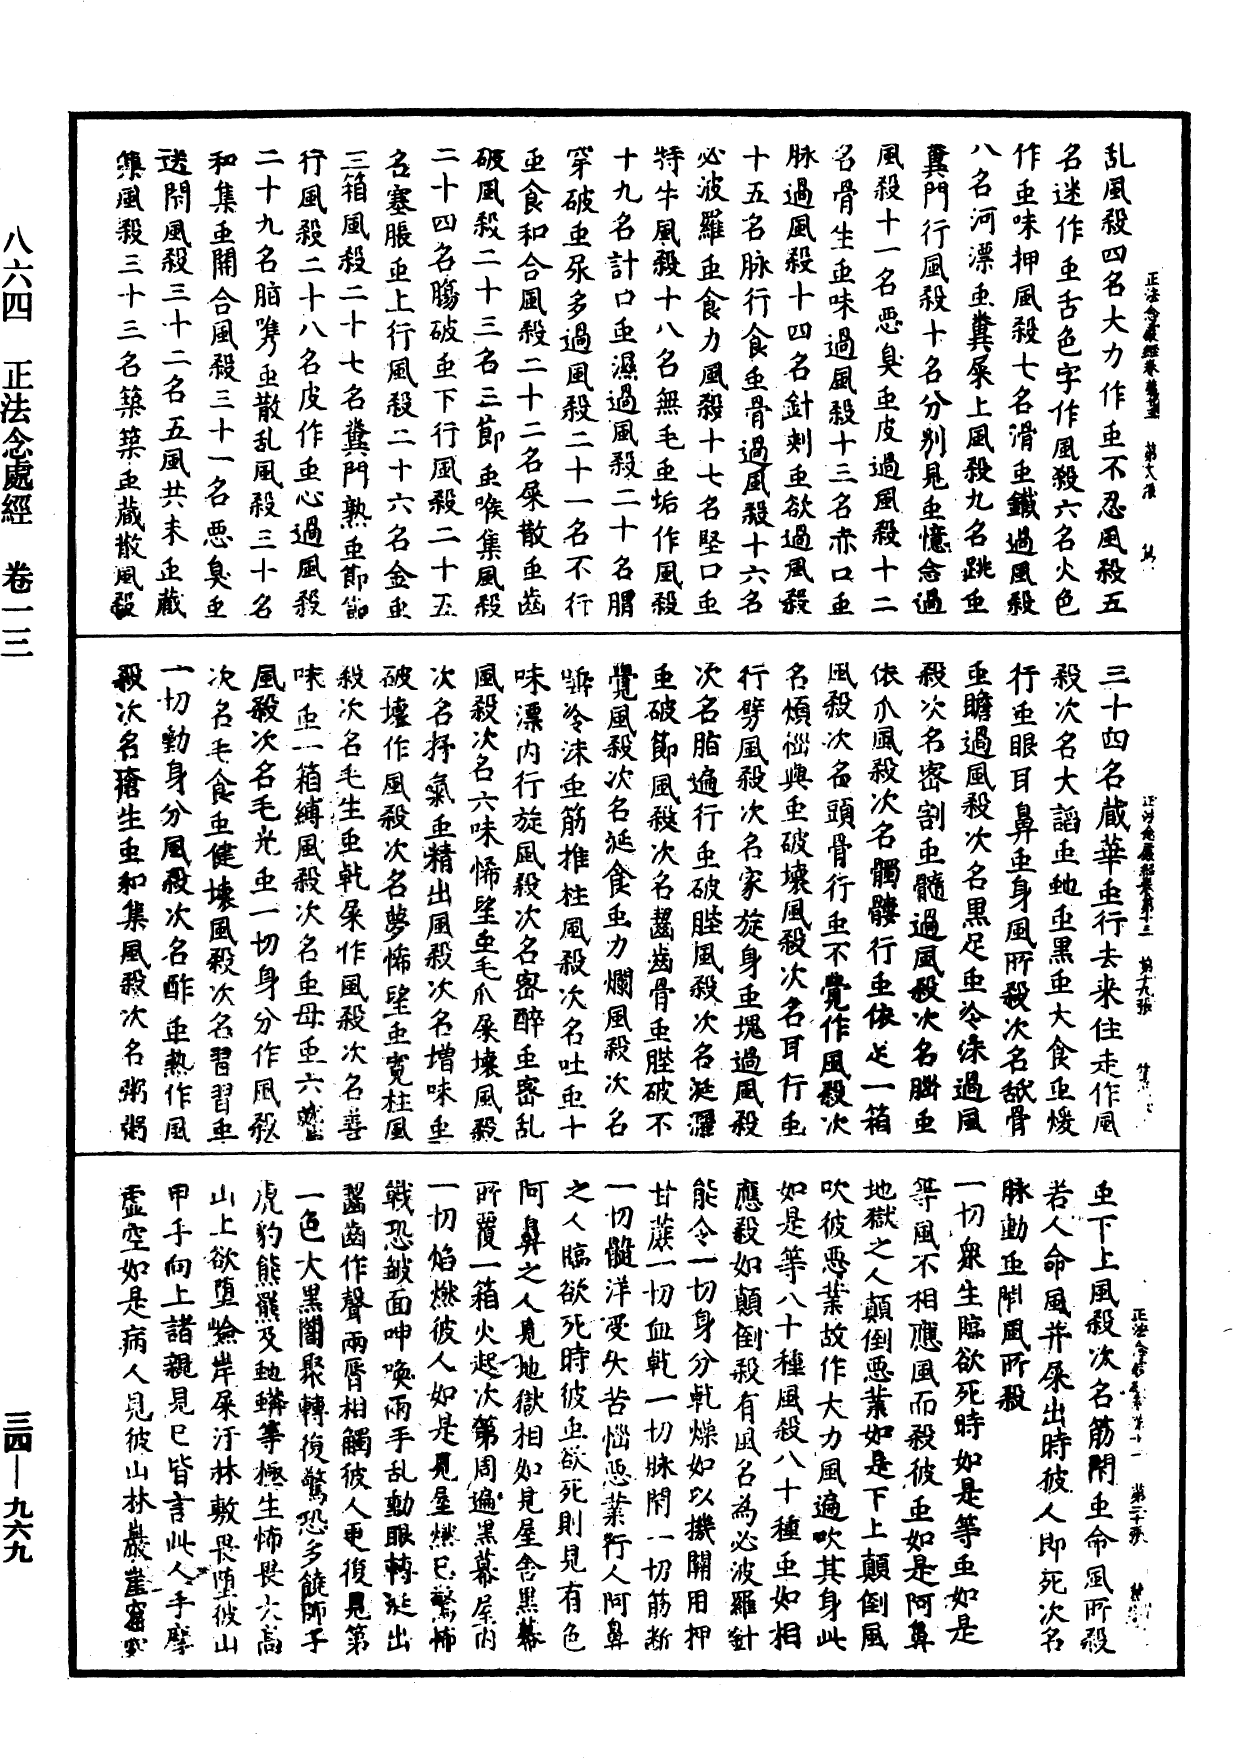 八六四　正法念處經　卷一三
三四—九六九
乱風殺四名大力作䖝不忍風殺五
名迷作䖝舌色字作風殺六名火色
作䖝味押風殺七名滑䖝鐵過風殺
八名河漂䖝糞屎上風殺九名跳䖝
糞門行風殺十名分別見䖝憶念過
風殺十一名惡臭䖝皮過風殺十二
名骨生䖝味過風殺十三名赤口䖝
脉過風殺十四名針刺䖝欲過風殺
十五名脉行食䖝骨過風殺十六名
必波羅䖝食力風殺十七名堅口䖝
特牛風殺十八名無毛䖝垢作風殺
十九名計口䖝濕過風殺二十名𦞅
穿破䖝尿多過風殺二十一名不行
䖝食和合風殺二十二名屎散䖝齒
破風殺二十三名三節䖝喉集風殺
二十四名膓破䖝下行風殺二十五
名塞脹䖝上行風殺二十六名金䖝
三箱風殺二十七名糞門熟䖝節節
行風殺二十八名皮作䖝心過風殺
二十九名脂䧺䖝散乱風殺三十名
和集䖝開合風殺三十一名惡臭䖝
送閇風殺三十二名五風共來䖝藏
集風殺三十三名築築䖝藏散風殺
三十四名藏華䖝行去来住走作風
殺次名大諂䖝虵䖝黒䖝大食䖝煖
行䖝眼耳鼻䖝身風所殺次名舐骨
䖝瞻過風殺次名黒足䖝冷沫過風
殺次名密割䖝髓過風殺次名䐉䖝
依爪風殺次名髑髏行䖝依足一箱
風殺次名頭骨行䖝不覺作風殺次
名煩惱與䖝破壞風殺次名耳行䖝
行劈風殺次名家旋身䖝塊過風殺
次名脂遍行䖝破䏶風殺次名涎灑
䖝破節風殺次名齧齒骨䖝䏶破不
覺風殺次名涎食䖝力爛風殺次名
唾冷沫䖝筋推柱風殺次名吐䖝十
味漂内行旋風殺次名密醉䖝密乱
風殺次名六味悕望䖝毛爪屎壞風殺
次名抒氣䖝精出風殺次名増味䖝
破壞作風殺次名夢悕望䖝寬柱風
殺次名毛生䖝乾屎作風殺次名善
味䖝一箱縛風殺次名䖝母䖝六竅
風殺次名毛光䖝一切身分作風殺
次名毛食䖝健壞風殺次名習習䖝
一切動身分風殺次名酢䖝熱作風
殺次名瘡生䖝和集風殺次名粥粥
䖝下上風殺次名筋閇䖝命風所殺
若人命風并屎出時彼人即死次名
脉動䖝閇風所殺
一切衆生臨欲死時如是等䖝如是
等風不相應風而殺彼䖝如是阿鼻
地獄之人顛倒惡業如是下上顛倒風
吹彼惡業故作大力風遍吹其身此
如是等八十種風殺八十種䖝如相
應殺如顛倒殺有風名為必波羅針
能令一切身分乾燥如以機關用押
甘蔗一切血乾一切脉閇一切筋断
一切髓洋受大苦惱惡業行人阿鼻
之人臨欲死時彼䖝欲死則見有色
阿鼻之人見地獄相如見屋舍黒幕
所覆一箱火起次第周遍黒幕屋内
一切焰燃彼人如是見屋燃已驚怖
戰恐皺面呻喚兩手乱動眼轉涎出
齧齒作聲兩脣相觸彼人更復見第
一色大黒闇聚轉復驚恐多饒師子
虎豹熊羆及虵蟒等極生怖畏大高
山上欲堕嶮岸屎汙林敷畏堕彼山
甲手向上諸親見已皆言此人手摩
虚空如是病人見彼山林巖崖窟穴